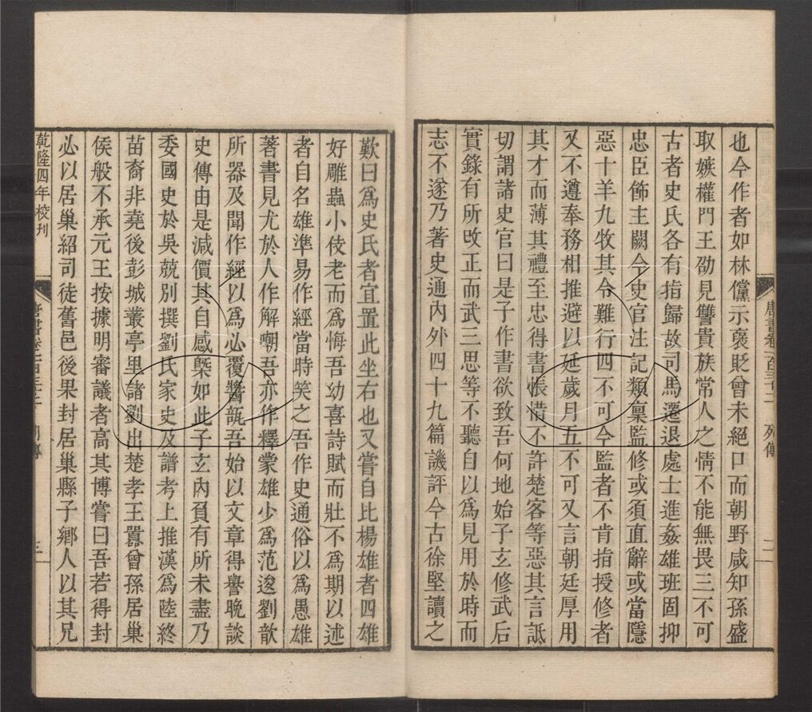 也今作者如林儻示褒貶曾未絕口而朝野咸知孫盛
取嫉權門王劭見讐貴族常人之情不能無畏三不可
古者史氏各有指歸故司馬遷退處士進姦雄班固抑
忠臣飾主闕今史官注記類稟監修或須直辭或當隱
惡十羊九牧其令難行四不可今監者不肯指授修者
又不遵奉務相推避以延歲月五不可又言朝廷厚用
其才而薄其禮至忠得書悵惜不許楚客等惡其言詆
切謂諸史官曰是子作書欲致吾何地始子玄修武后
實錄有所改正而武三思等不聽自以為見用於時而
志不遂乃著史通內外四十九篇譏評今古徐堅讀之
唐書卷一百三十二 列傳 二
歎曰為史氏者宜置此坐右也又嘗自比楊雄者四雄
好雕蟲小伎老而為悔吾幼喜詩賦而壯不為期以述
者自名雄準易作經當時笑之吾作史通俗以為愚雄
著書見尤於人作解嘲吾亦作釋蒙雄少為范逡劉歆
所器及聞作經以為必覆醬瓿吾始以文章得譽晚談
史傳由是減價其自感槩如此子玄內負有所未盡乃
委國史於吳兢別撰劉氏家史及譜考上推漢為陸終
苗裔非堯後彭城叢亭里諸劉出楚孝王囂曾孫居巢
侯般不承元王按據明審議者高其博嘗曰吾若得封
必以居巢紹司徒舊邑後果封居巢縣子鄉人以其兄
乾隆四年校刊 唐書卷一百三十二 列傳 三